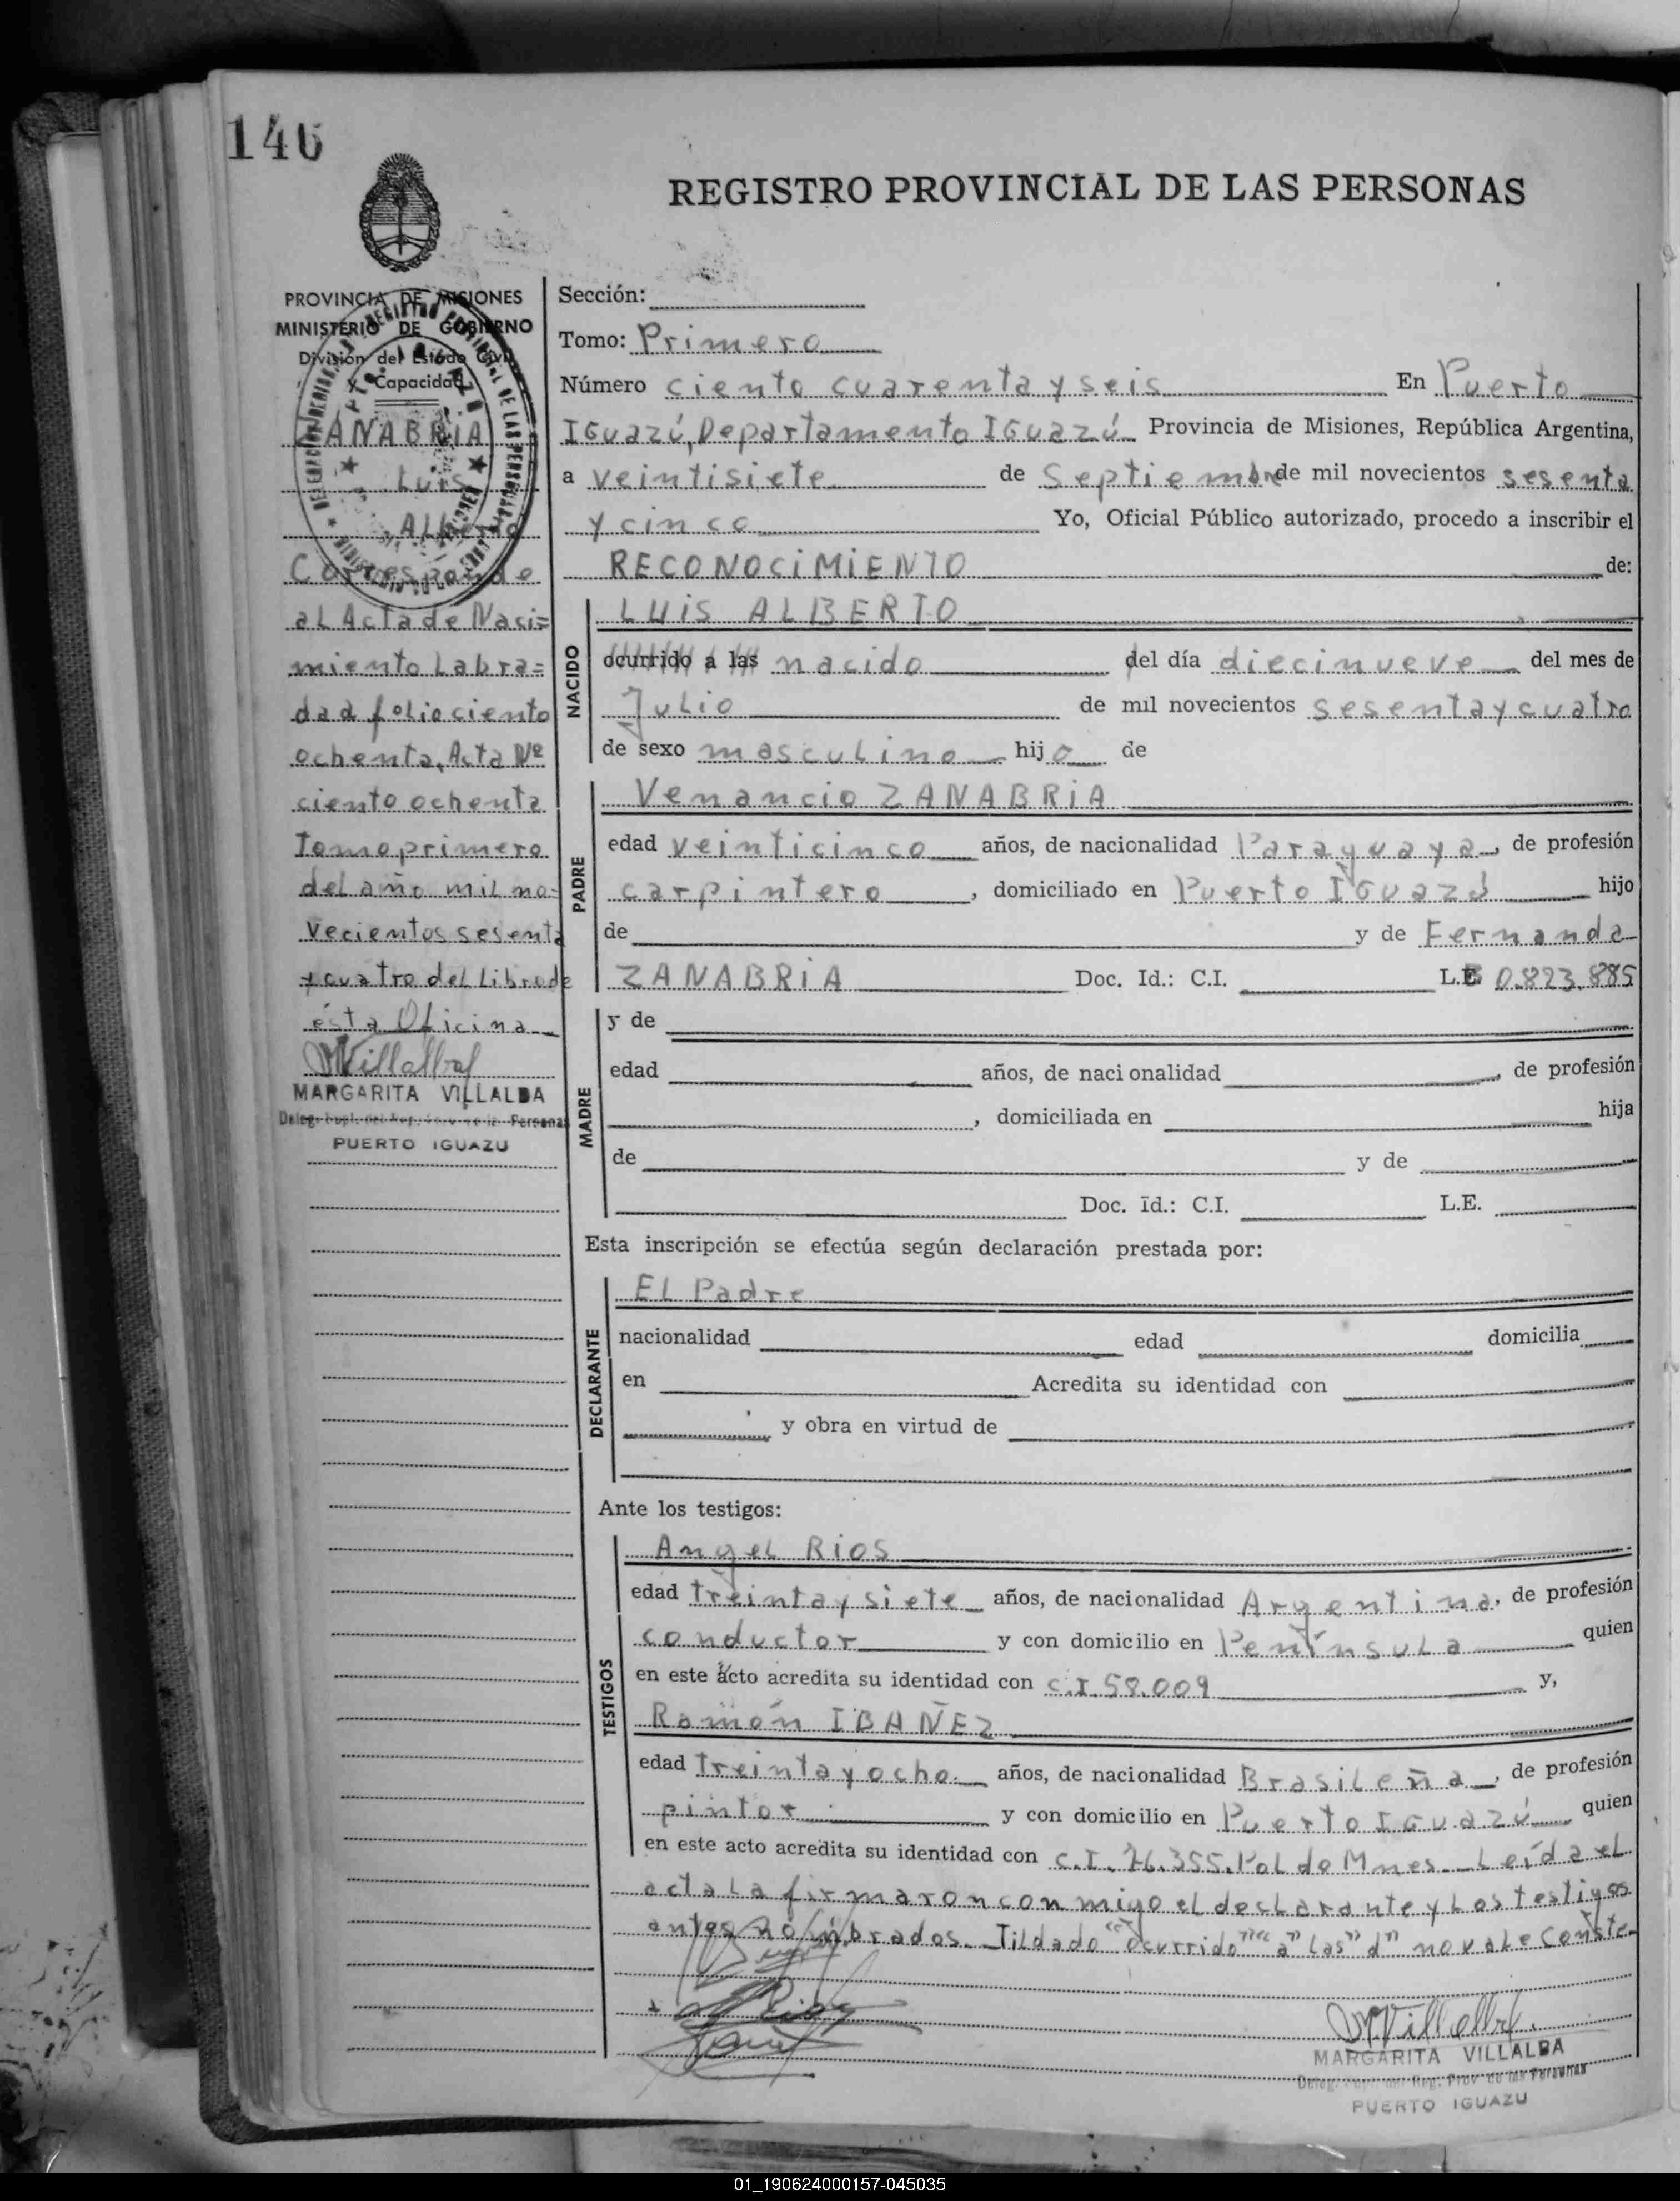 146
REGISTRO PROVINCIAL DE LAS PERSONAS
PROVINCIA DE MISIONES
MINISTERIO DE GOBIERNO
División del Estado Civil
y Capacidad
ZANABRIA
Luis
Alberto
Corresponde
al Acta de Naci=
miento Labra=
da a folio ciento
ochenta, Acta Nº
ciento ochenta
Tomo primero
del año mil no=
vecientos sesenta
y cuatro del Libro de
ésta Oficina
MVillalba
MARGARITA VILLALBA
PUERTO IGUAZU
Sección:
Tomo: Primero
Número ciento cuarenta y seis En Puerto
IGuazú, Departamento IGuazú Provincia de Misiones, República Argentina,
a veintisiete de Septiembre de mil novecientos sesenta
y cinco Yo, Oficial Público autorizado, procedo a inscribir el
RECONOCIMIENTO de:
NACIDO
LUIS ALBERTO
ocurrido a las nacido del día diecinueve del mes de
Julio de mil novecientos sesenta y cuatro
de sexo masculino hijo de
PADRE
Venancio ZANABRIA
edad veinticinco años, de nacionalidad Paraguaya, de profesión
carpintero, domiciliado en Puerto IGuazú hijo
de y de Fernanda
ZANABRIA Doc. Id.: C.I. L.E. 0.823.885
MADRE
y de
edad años, de nacionalidad , de profesión
, domiciliada en hija
de y de
Doc. Id.: C.I. L.E.
Esta inscripción se efectúa según declaración prestada por:
DECLARANTE
El Padre
nacionalidad edad domicilia
en Acredita su identidad con
y obra en virtud de
Ante los testigos:
TESTIGOS
Angel RIOS
edad treinta y siete años, de nacionalidad Argentina, de profesión
conductor y con domicilio en Península quien
en este acto acredita su identidad con C.I. 58.009 y,
Ramón IBAÑEZ
edad treinta y ocho años, de nacionalidad Brasileña, de profesión
pintor y con domicilio en Puerto IGuazú quien
en este acto acredita su identidad con C.I. 76.355. Pol de Mnes. Leída el
acta la firmaron conmigo el declarante y los testigos
antes nombrados. Tildado "ocurrido" "a" las" d" no vale Conste
Rios
MVillalba
MARGARITA VILLALBA
Deleg. Supl. del Reg. Prov de las Personas
PUERTO IGUAZU
01_190624000157-045035